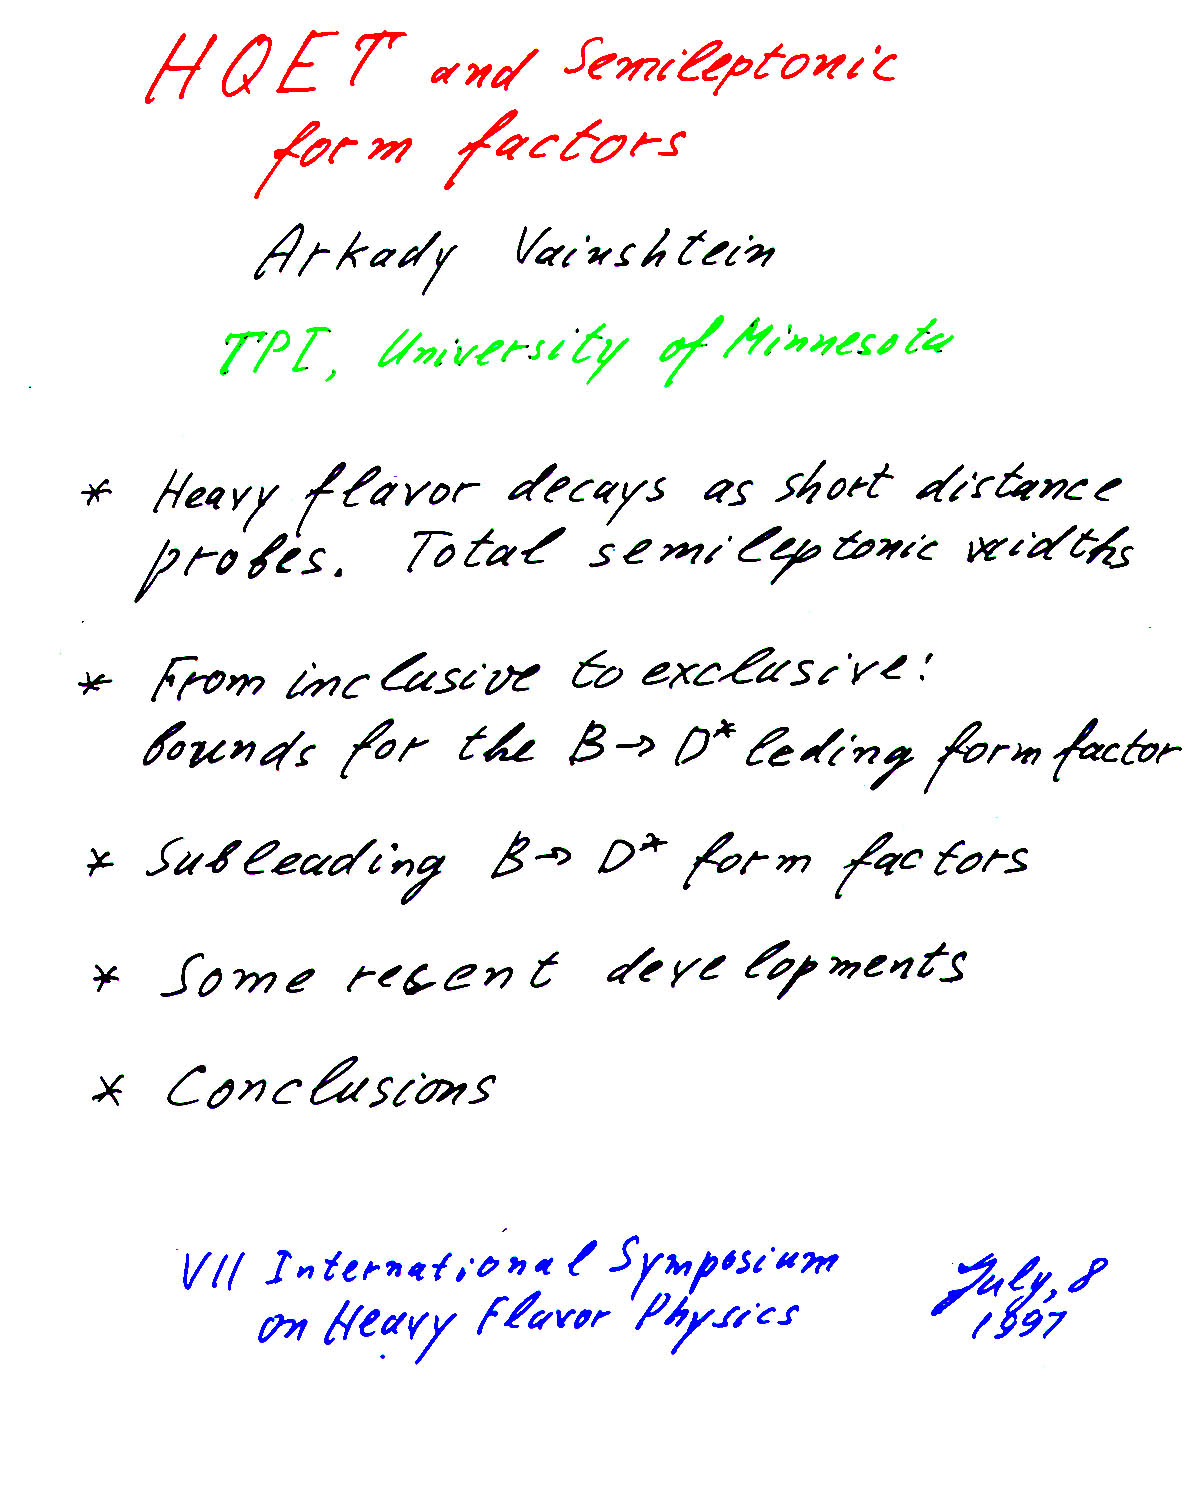 HQET and Semileptonic
form factors
Arkady Vainshtein
TPI, University of Minnesota
* Heavy flavor decays as short distance
probes. Total semileptonic widths
* From inclusive to exclusive:
bounds for the B→D* leding form factor
* Subleading B→D* form factors
* Some recent developments
* Conclusions
VII International Symposium
on Heavy Flavor Physics
July, 8
1997